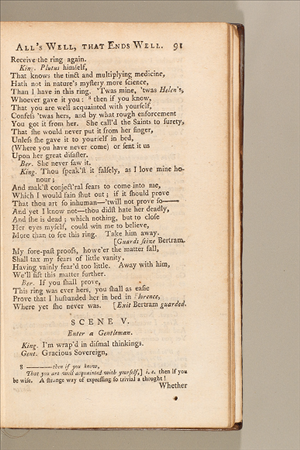 ALL'S WELL, THAT ENDS WELL. 91
Receive the ring again.
King. Plutus himself,
That knows the tinct and multiplying medicine,
Hath not in nature's mystery more science,
Than I have in this ring. 'Twas mine, 'twas Helen's,
Whoever gave it you: ⁸ then if you know,
That you are well acquainted with yourself,
Confess 'twas hers, and by what rough enforcement
You got it from her. She call'd the Saints to surety,
That she would never put it from her finger,
Unless she gave it to yourself in bed,
(Where you have never come) or sent it us
Upon her great disaster.
Ber. She never saw it.
King. Thou speak'st it falsely, as I love mine ho-
nour;
And mak'st conject'ral fears to come into me,
Which I would fain shut out; if it should prove
That thou art so inhuman—'twill not prove so——
And yet I know not—thou didst hate her deadly,
And she is dead; which nothing, but to close
Her eyes myself, could win me to believe,
More than to see this ring. Take him away.
[Guards seize Bertram.
My fore-past proofs, howe'er the matter fall,
Shall tax my fears of little vanity,
Having vainly fear'd too little. Away with him,
We'll sift this matter further.
Ber. If you shall prove,
This ring was ever hers, you shall as easie
Prove that I husbanded her in bed in Florence,
Where yet she never was. [Exit Bertram guarded.
SCENE V.
Enter a Gentleman.
King. I'm wrap'd in dismal thinkings.
Gent. Gracious Sovereign,
8 ———then if you know,
That you are well acquainted with yourself,] i. e. then if you
be wise. A strange way of expressing so trivial a thought!
Whether